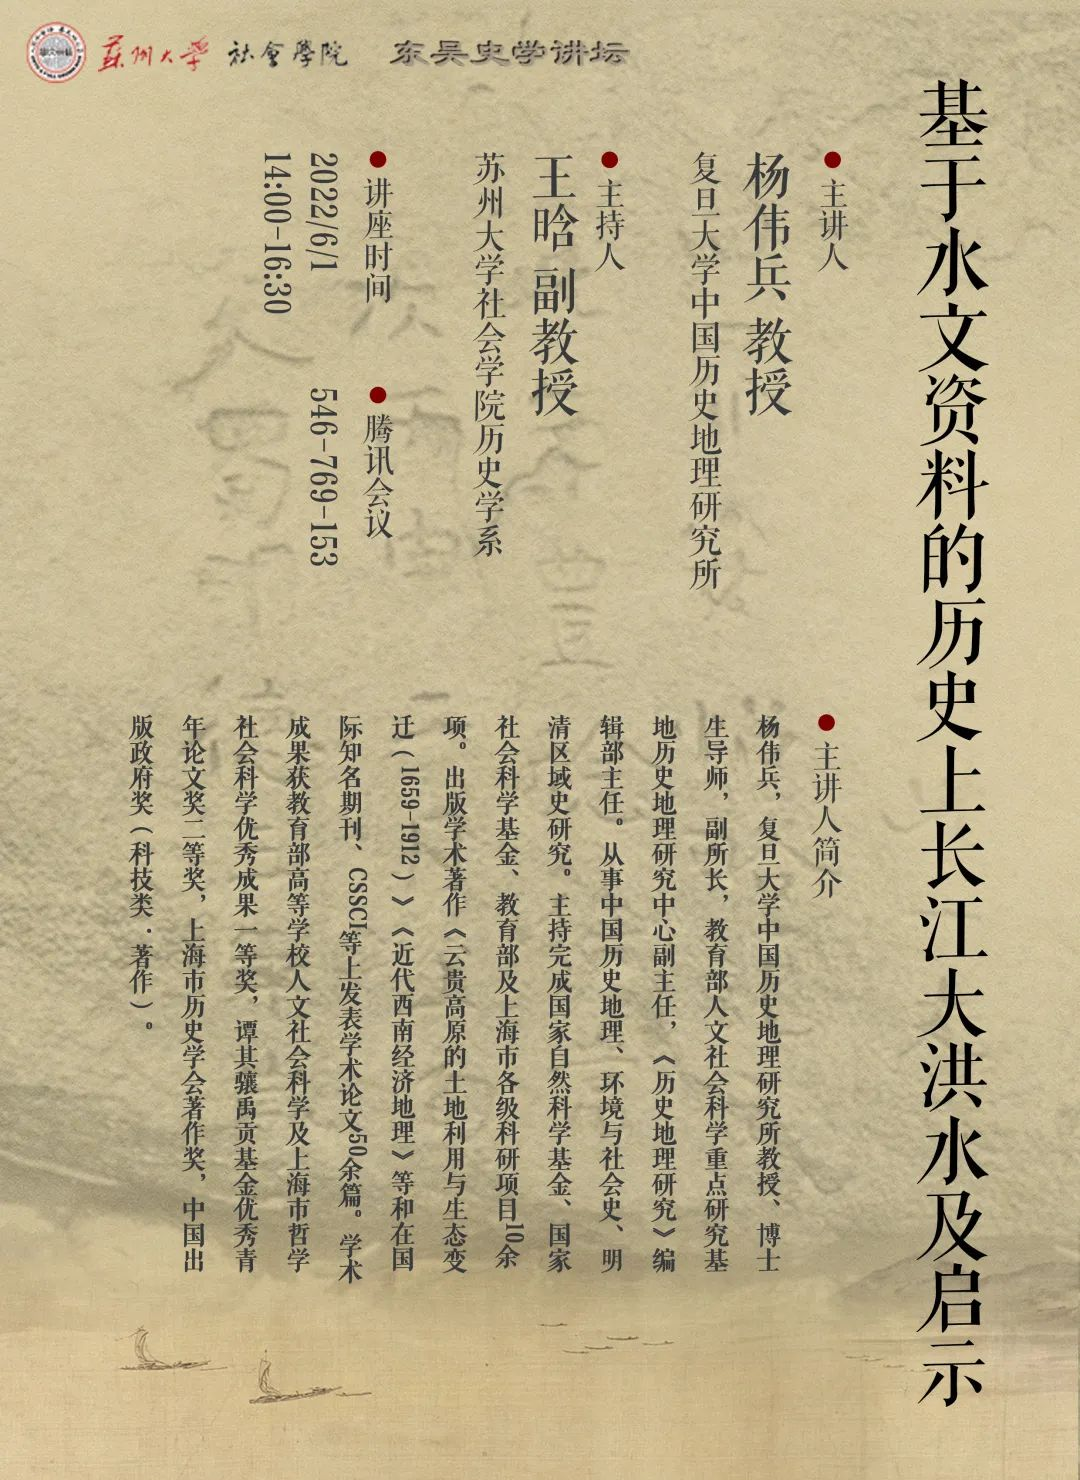 蘇州大學 社會學院 东吴史学讲坛
基于水文资料的历史上长江大洪水及启示
主讲人
杨伟兵 教授
复旦大学中国历史地理研究所
主持人
王晗 副教授
苏州大学社会学院历史学系
讲座时间
2022/6/1
14:00-16:30
腾讯会议
546-769-153
主讲人简介
杨伟兵，复旦大学中国历史地理研究所教授、博士
生导师，副所长，教育部人文社会科学重点研究基
地历史地理研究中心副主任，《历史地理研究》编
辑部主任。从事中国历史地理、环境与社会史、明
清区域史研究。主持完成国家自然科学基金、国家
社会科学基金、教育部及上海市各级科研项目10余
项。出版学术著作《云贵高原的土地利用与生态变
迁（1659-1912）》《近代西南经济地理》等和在国
际知名期刊、CSSCI等上发表学术论文50余篇。学术
成果获教育部高等学校人文社会科学及上海市哲学
社会科学优秀成果一等奖，谭其骧禹贡基金优秀青
年论文奖二等奖，上海市历史学会著作奖，中国出
版政府奖（科技类·著作）。